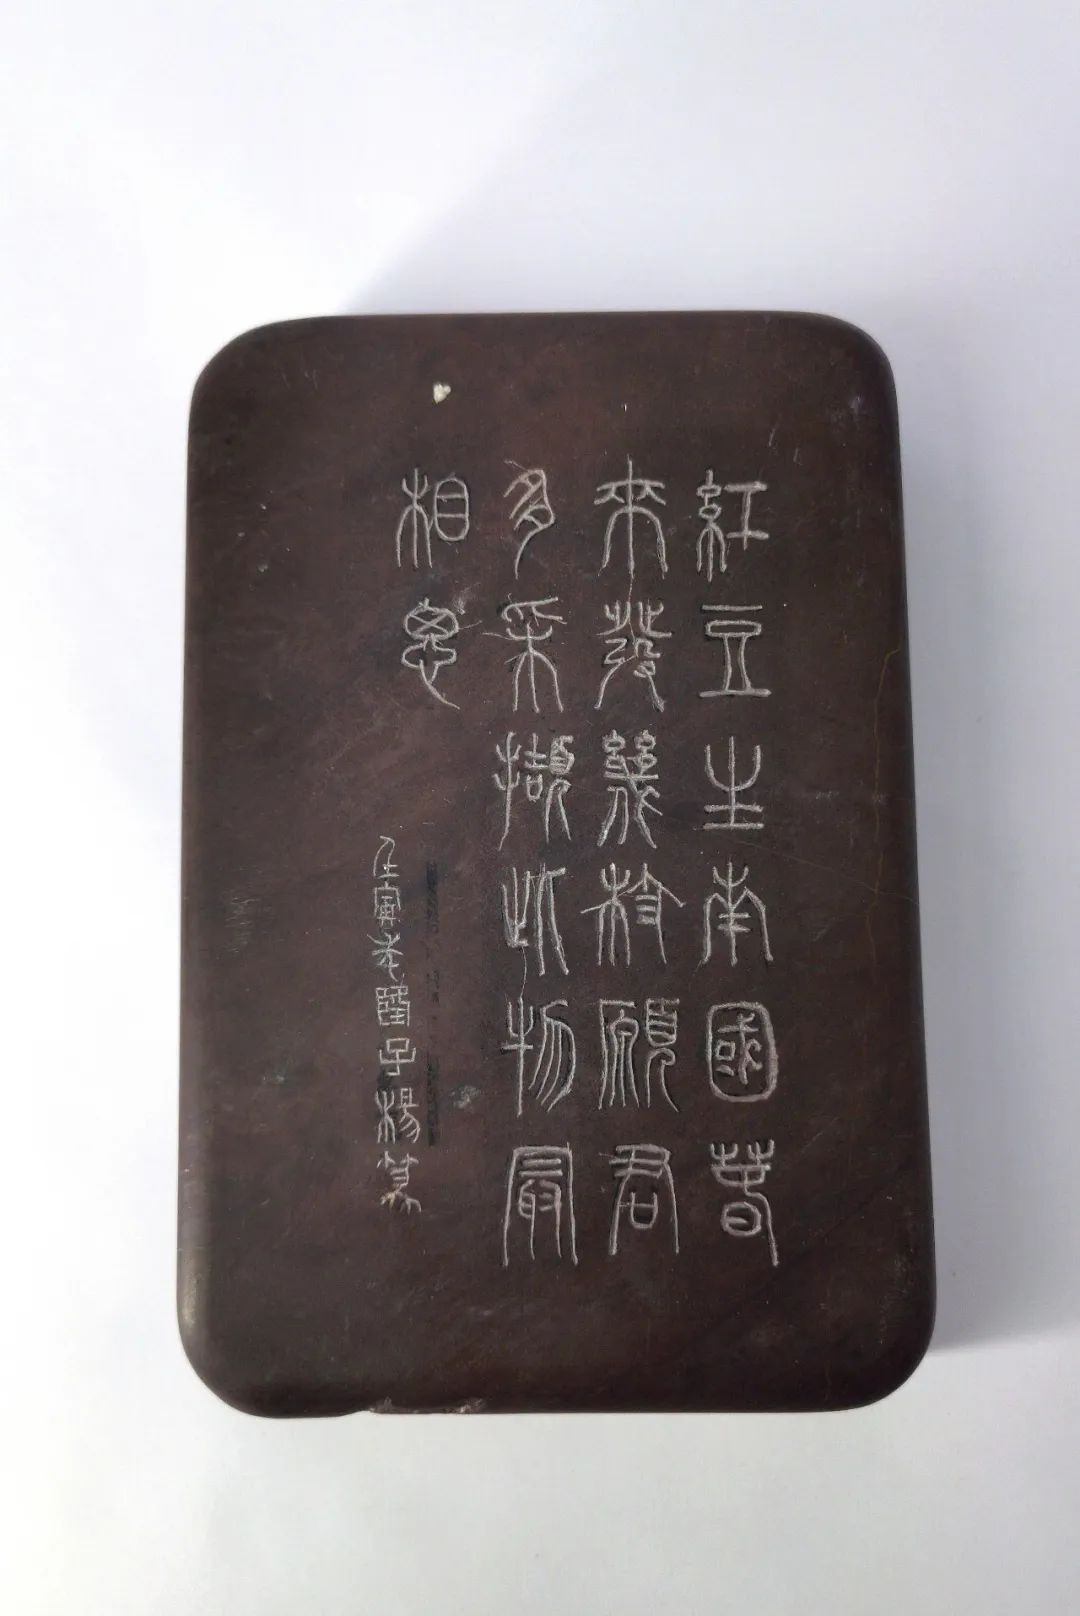 紅豆生南國春
來發幾枝願君
多采擷此物最
相思
壬寅老醫子楊篆